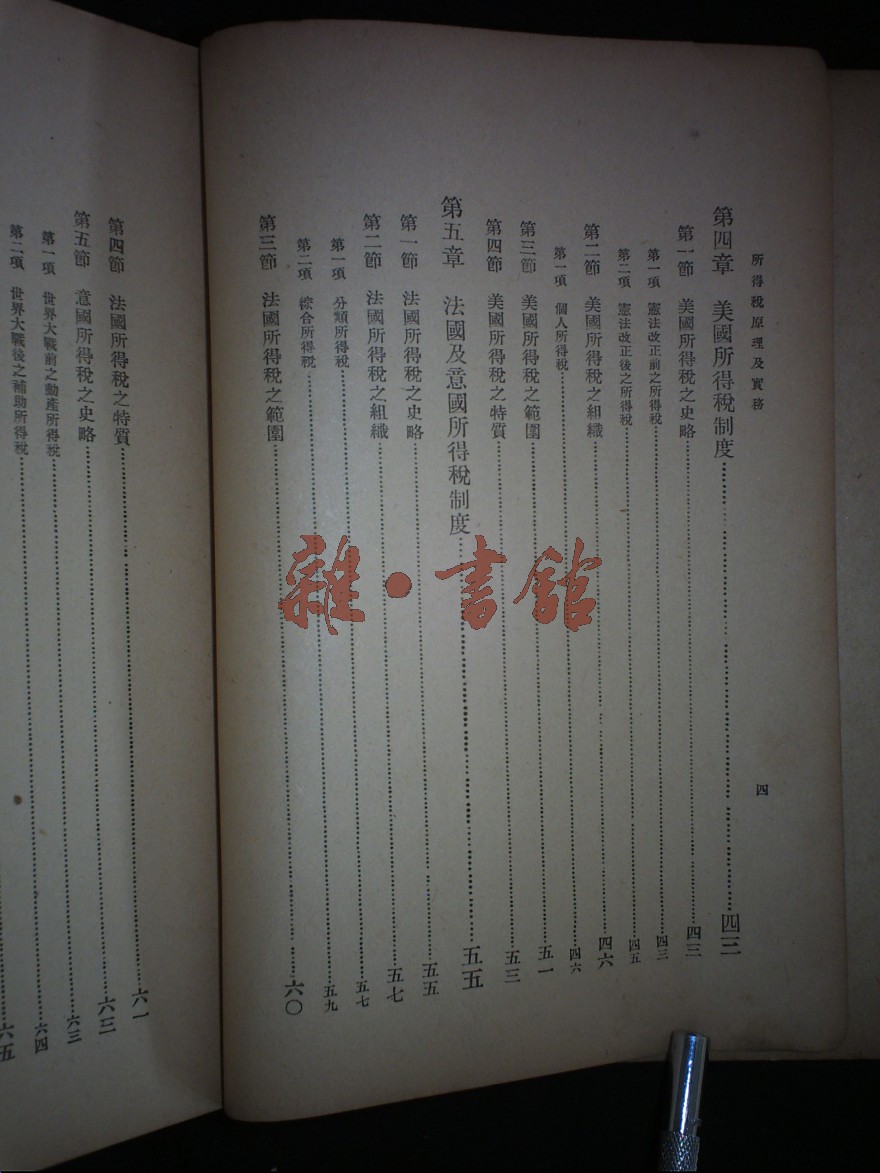 所得稅原理及實務
四
第四章 美國所得稅制度……四三
第一節 美國所得稅之史略……四三
第一項 憲法改正前之所得稅……四三
第二項 憲法改正後之所得稅……四五
第二節 美國所得稅之組織……四六
第一項 個人所得稅……四六
第三節 美國所得稅之範圍……五一
第四節 美國所得稅之特質……五三
第五章 法國及意國所得稅制度……五五
第一節 法國所得稅之史略……五五
第二節 法國所得稅之組織……五七
第一項 分類所得稅……五七
第二項 綜合所得稅……五九
第三節 法國所得稅之範圍……六〇
第四節 法國所得稅之特質……六一
第五節 意國所得稅之史略……六三
第一項 世界大戰前之動產所得稅……六三
第二項 世界大戰後之補助所得稅……六四
六五
雜·書館